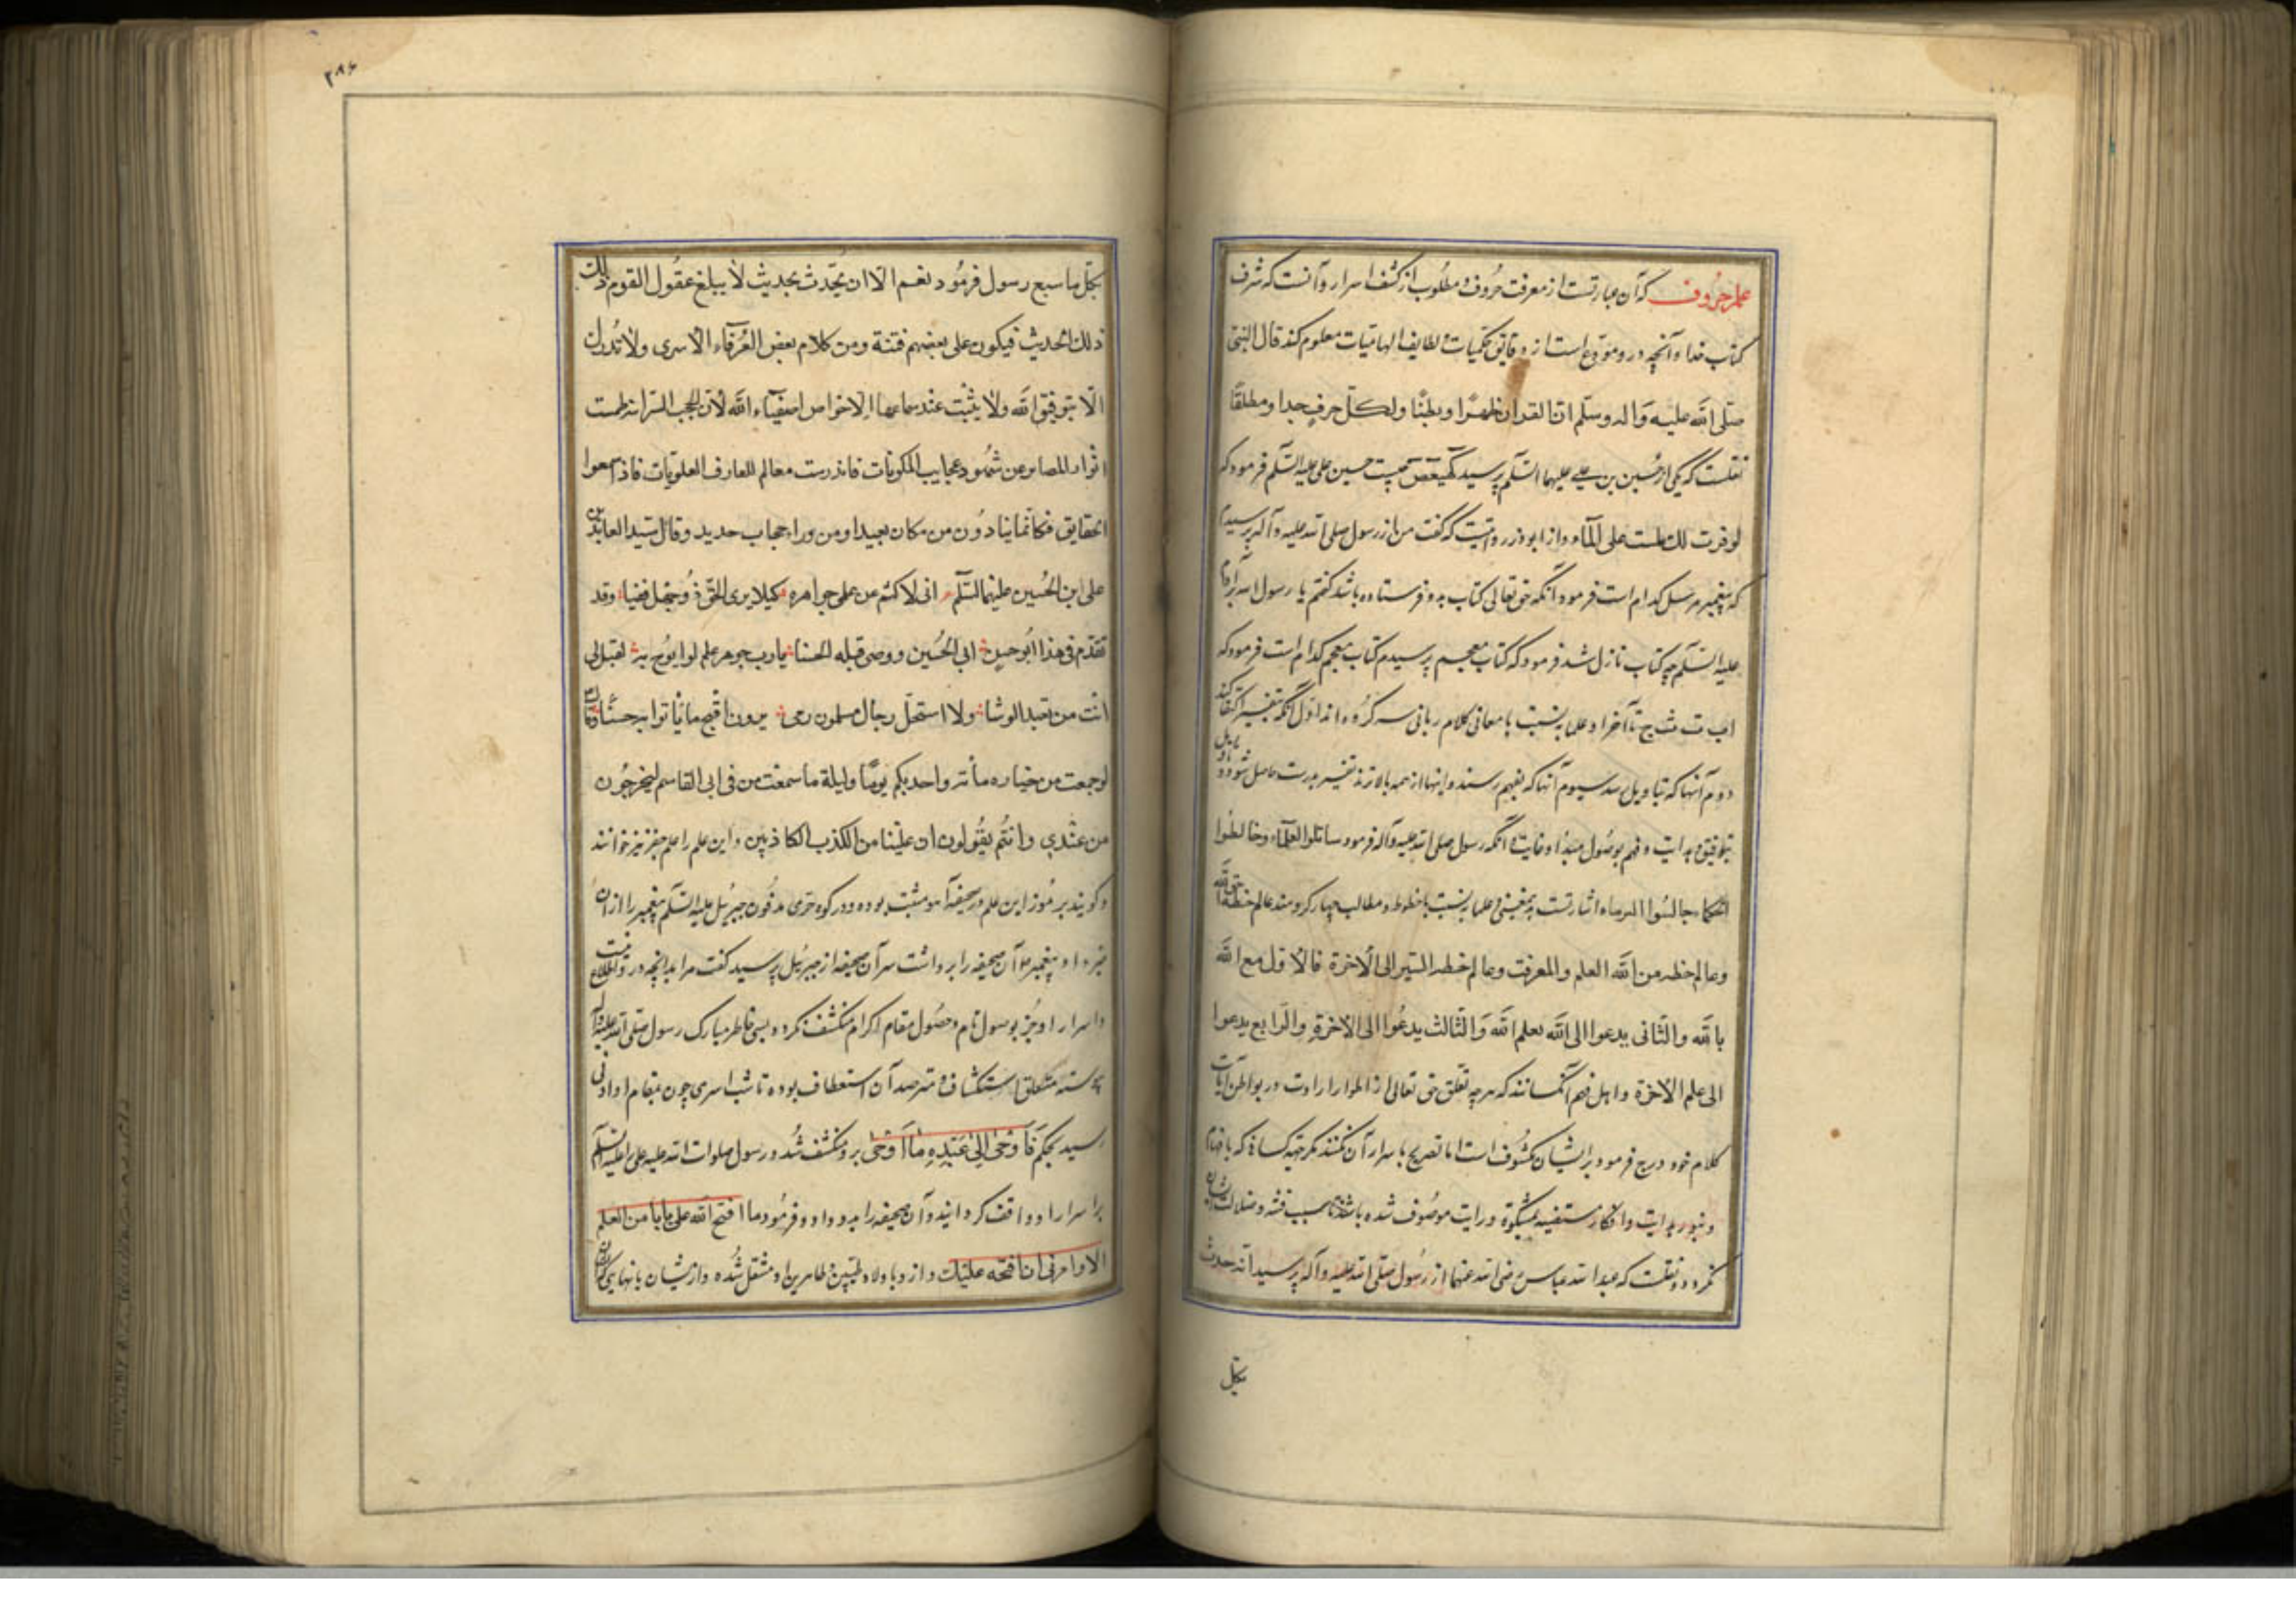 علم حروف که آن عبارتست از معرفت حروف و مطلوب از کشف اسرار و آنست که شرف
کتاب خدا و آنچه در و مودع است از دقایق حکمیات و لطایف الهامیات معلوم کند قال النبی
صلی الله علیه واله وسلم ان القران ظهرا وبطنا ولکل حرف حدا ومطلقا
نقلست که یکی از حسین بن علی علیهما السلم پرسید کهیعص چیست حسین علی علیه السلم فرمود که
لو فسرت لک علی المآء و از ابوذر روایتست که گفت من از رسول صلی الله علیه وآله پرسیدم
که پیغمبر مرسل کدام است فرمود آنکه حق تعالی کتاب بدو فرستاده باشد گفتم یا رسول الله بر آدم
علیه السلم چه کتاب نازل شد فرمود که کتاب معجم پرسیدم کتاب معجم کدام است فرمود که
اب ت ث ج تا آخر و علما بنسبت با معانی کلام ربانی سه گروه اند اول آنکه بتفسیر اکتفا کنند
دوم آنها که بتاویل رسند سیوم آنها که بفهم رسند و اینها از همه بالاترند تفسیر بدرت حاصل شود و تاویل
بتوفیق و هدایت و فهم بوصول مبدا و غایت آنکه رسول صلی الله علیه وآله فرمود سائلوا العلمآء وخالطوا
الحکما وجالسوا اشارتست بدین معنی و علما بنسبت با حظوظ و مطالب چهار گروهند عالم حظه الله
وعالم حظه من الله العلم والمعرفت وعالم حظه السیر الی الاخرة فالاول مع الله
بالله والثانی یدعوا الی الله بعلم الله والثالث یدعوا الی الاخرة والرابع یدعوا
الی علم الاخرة و اهل فهم آنکسانند که هر چه تعلق حق تعالی از اطوار ارادت در بواطن آیات
کلام خود درج فرمود بر ایشان مکشوف است اما تصریح باسرار آن نکنند مگر جهة کسانی که بافهام
و بنور هدایت و افکار مستضیه بمشکوة درایت موصوف شده باشند تا سبب فتنه و ضلالت ایشان
نگردد و نقلست که عبدالله عباس رضی الله عنهما از رسول صلی الله علیه وآله پرسید احدث
بکل
۲۸۶
بکل ما سمع رسول فرمود نعم الا ان یحدث بحدیث لا یبلغ عقول القوم ذلک
ذلک الحدیث فیکون علی بعضهم فتنة ومن کلام بعض العرفآء الاسری ولا تدرک
الا بتوفیق الله ولا یثبت عند سماعها الا خواص اصفیآء الله لان الحجب
انوار عن شهود عجایب المکونات فاندرست معالم المعارف العلویات فاذ اسمعوا
الحقایق فکانما ینادون من مکان بعید او من وراء حجاب حدید وقال سید العابدین
علی ابن الحسین علیهما السلم انی لاکتم من علمی جواهره کیلا یری الحق ذو جهل فقد
تقدم فی هذا ابو حسن الی الحسین ووصی قبله الحسنا یا رب جوهر علم لو ابوح به لقیل لی
انت من یعبد الوثنا ولا استحل رجال مسلمون دمی یرون اقبح ما یاتوا به حسنا
لو جمعت من خیاره مأة واحدیکم یوما ولیلة ما سمعت من فی ابی القاسم لیخرجون
من عندی وانتم یقولون ان علینا من الکذب الکاذبین و این علم را علم جفر نیز خوانند
و گویند رموز این علم در صحیفۀ مثبت بوده و در کوه حری مدفون جبرئیل علیه السلم پیغمبر را از آن
خبر داد پیغمبر آن صحیفه را برداشت سر آن صحیفه از جبرئیل پرسید گفت مرا بدانچه در و اطلاع نیست
و اسرار او جز بوصول تام و حصول مقام اکرام منکشف نگردد پس خاطر مبارک رسول صلی الله علیه وآله
متعلق استکشاف و مترصد آن استعطاف بوده تا شب اسری چون بمقام او ادنی
رسید بحکم فاوحی الی عبده ما اوحی برو منکشف شد و رسول صلوات الله علیه علی علیه السلم
بر اسرار او واقف گردانید و آن صحیفه را بدو داد و فرمود ما افتح الله علی بابا من العلم
الا وامرنی ان افتحه علیک و از و باولاد طیبین و طاهرین او منتقل شده و از ایشان بانهایی که